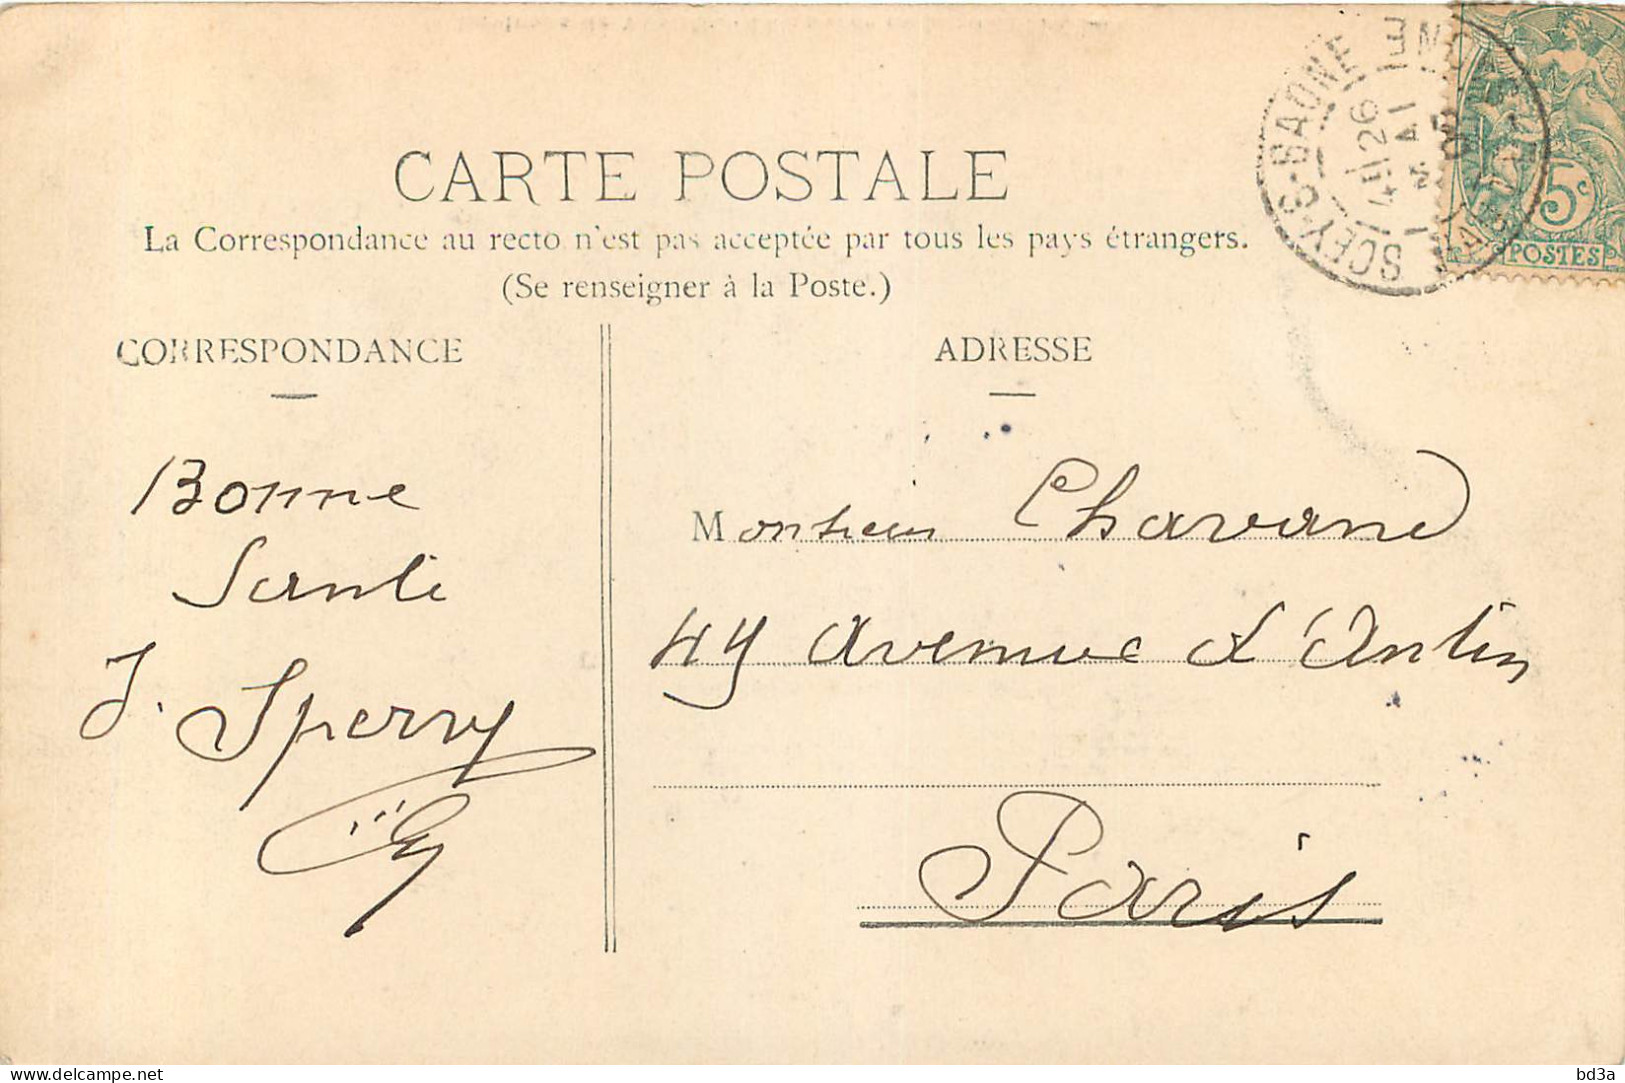 CARTE POSTALE
La Correspondance au recto n'est pas acceptée par tous les pays étrangers.
(Se renseigner à la Poste.)
CORRESPONDANCE
ADRESSE
Bonne
Santé
J. Sperry
Monsieur Chavane
49 Avenue d'Antin
Paris
SCEY-S-SAONE
14 26
5c
POSTES
delcampe.net
bd3a